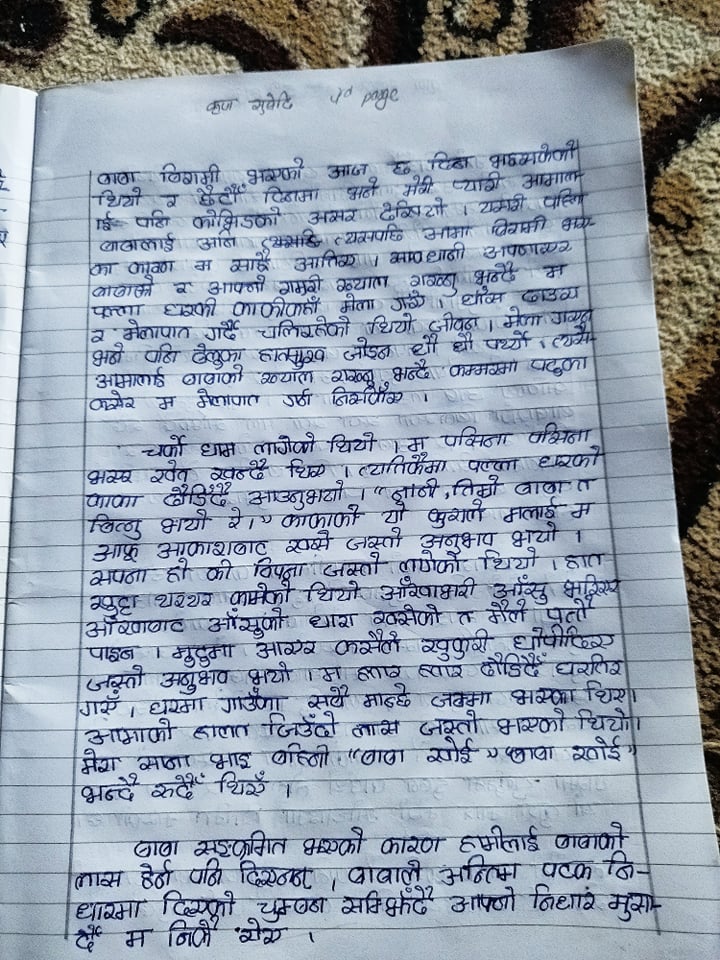 कृज सुवेदि 4d page
बाबा विरामी भएको आज छ दिन भइसकेको
थियो र छैटौँ दिनमा भने मेरी प्यारी आमाला-
ई पनि कोभिडको असर देखियो । यसरी पहिला
बाबालाई अनि त्यसपछि आमा विरामी भए-
का कारण म साह्रै आत्तिए । सावधानी अपनाएर
बाबाको र आफ्नो राम्ररी ख्याल राख्नु भन्दै म
पल्ला घरकी काकीकहाँ मेला गएँ । घाँस दाउरा
र मेलापात गर्दै चलिरहेको थियो जीवन । मेला गएन
भने पनि बेलुका हातमुख जोड्न धौ धौ पर्थ्यो । त्यसै
आमालाई बाबाको ख्याल राख्नु भन्दै कम्मरमा पटुका
कसेर म मेलापात गर्न निस्किएँ ।
चर्को घाम लागेको थियो । म पसिना पसिना
भएर खेत खन्दै थिए । त्यतिकैमा पल्ला घरको
काका दौडिँदै आउनुभयो । "नानी, तिम्रो बाबा त
बित्नु भयो रे ।" काकाको यो कुराले मलाई म
आफू आकाशबाट खसे जस्तो अनुभव भयो ।
सपना हो की विपना जस्तो लागेको थियो । हात
खुट्टा थरथर कामेको थियो आँखाभरी आँसु भरिएर
आँखाबाट आँसुको धारा खसेको त मैले पत्तै
पाइन । मुटुमा आएर कसैले खुकुरी धोपीदिए
जस्तो अनुभव भयो । म लरर लरर दौडिदैँ घरतिर
गएँ । घरमा गाउँका सबै मान्छे जम्मा भएका थिए।
आमाको हालत जिउँदो लास जस्तो भएको थियो।
मेरा साना भाइ बहिनी "बाबा खोई" "बाबा खोई"
भन्दै रुदैँ थिएँ ।
बाबा सङ्क्रमित भएको कारण हामीलाई बाबाको
लास हेर्न पनि दिएनन् । बाबाले अन्तिम पटक नि-
धारमा दिएको चुम्बन सम्झिँदै आफ्नो निधार मुसा-
र्दै म निकै रोए ।